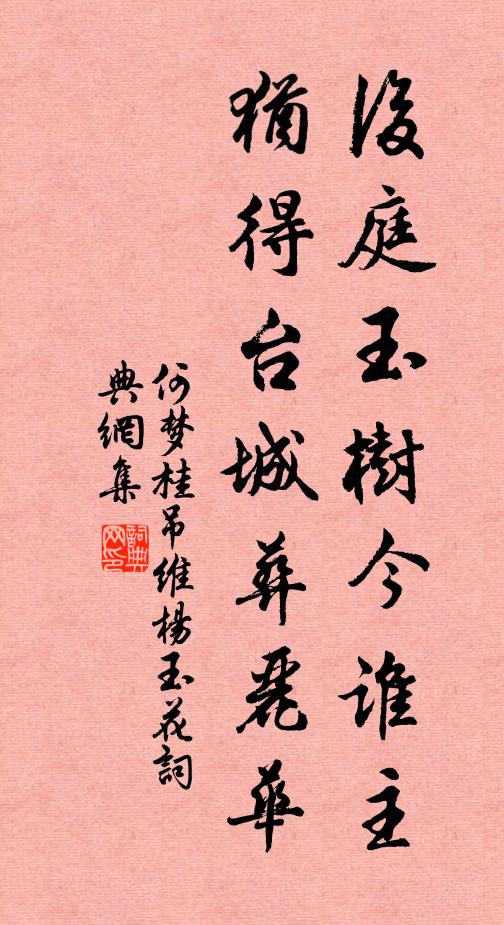 後庭玉樹今誰主
猶得台城葬麗華
何梦桂吊維楊玉花詞
典網集
詞典網印